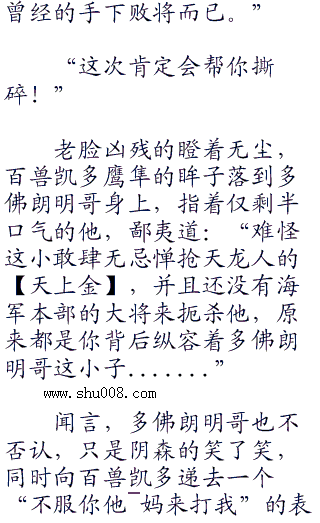 曾经的手下败将而已。”
“这次肯定会帮你撕
碎！”
老脸凶残的瞪着无尘，
百兽凯多鹰隼的眸子落到多
佛朗明哥身上，指着仅剩半
口气的他，鄙夷道：“难怪
这小敢肆无忌惮抢天龙人的
【天上金】，并且还没有海
军本部的大将来扼杀他，原
来都是你背后纵容着多佛朗
明哥这小子.......”
www.shu008.com
闻言，多佛朗明哥也不
否认，只是阴森的笑了笑，
同时向百兽凯多递去一个
“不服你他_妈来打我”的表